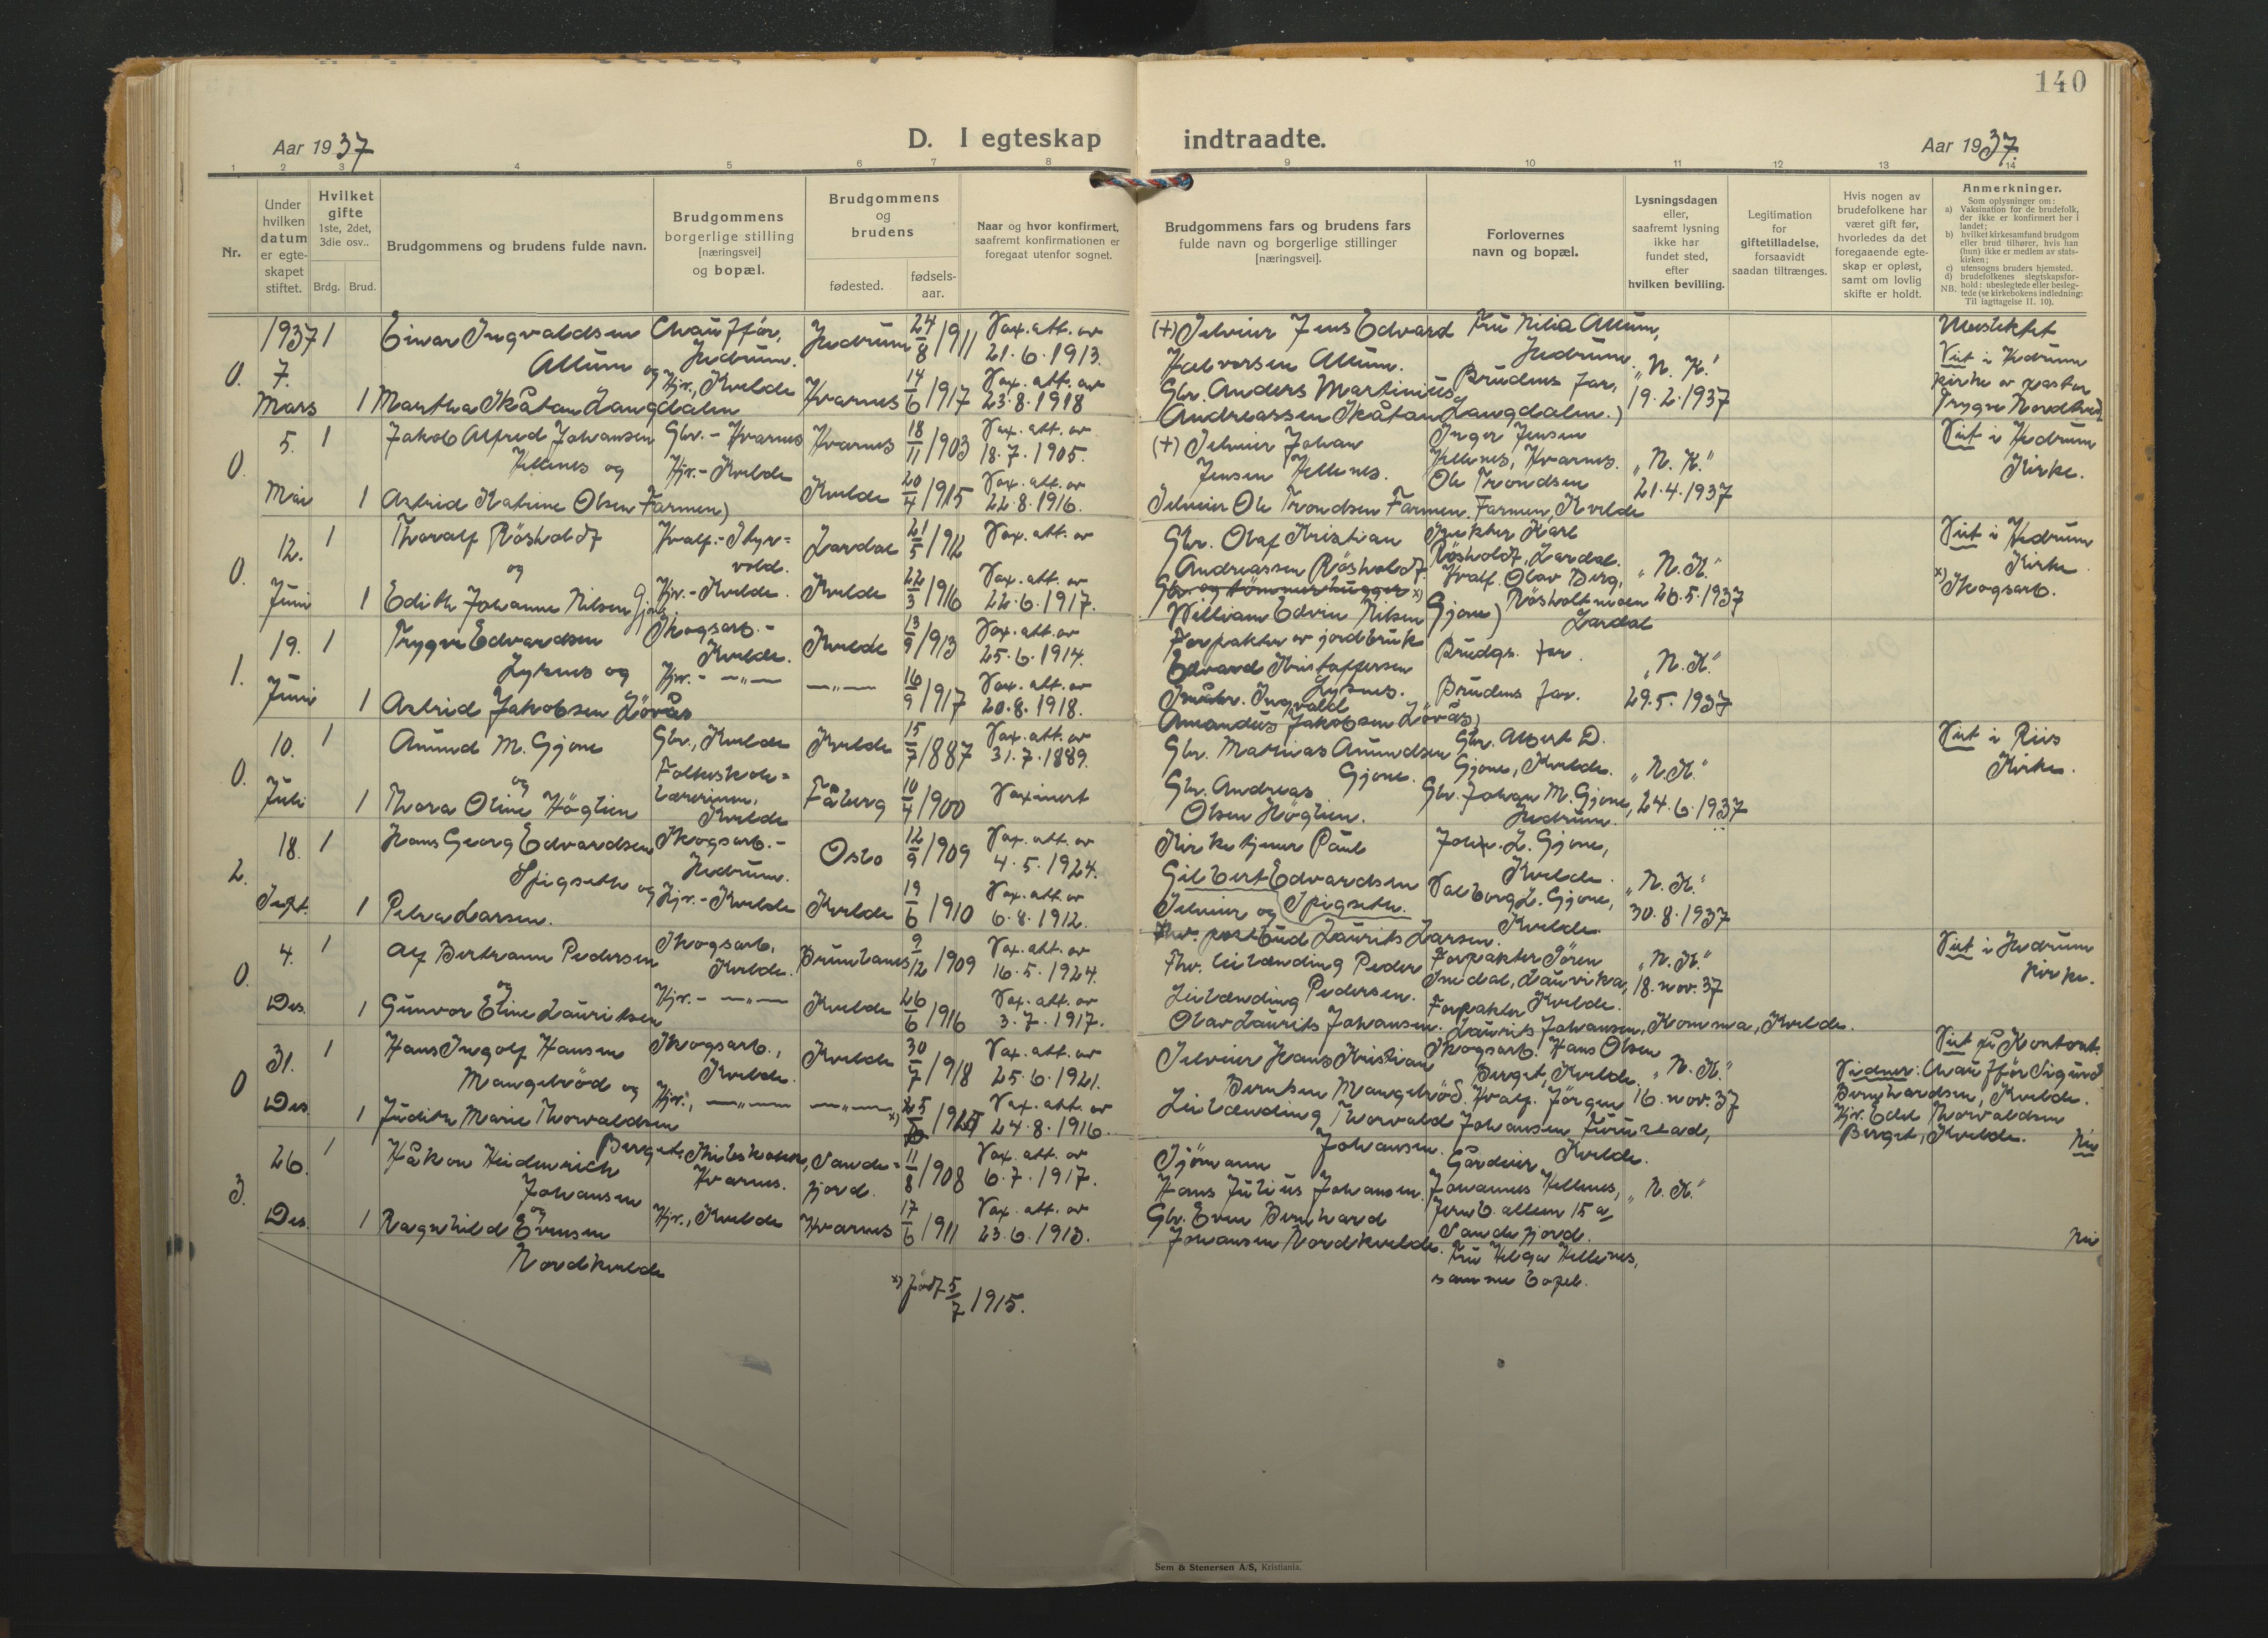 140
Aar 1937
D. I egteskap indtraadte.
Aar 1937.
1 2 3 4 5 6 7 8 9 10 11 12 13 14
Nr.
Under hvilken datum er egte-skapet stiftet.
Hvilket gifte
1ste, 2det, 3die osv..
Brdg. Brud.
Brudgommens og brudens fulde navn.
Brudgommens borgerlige stilling [næringsvei] og bopæl.
Brudgommens og brudens
fødested.
fødsels-aar.
Naar og hvor konfirmert, saafremt konfirmationen er foregaat utenfor sognet.
Brudgommens fars og brudens fars fulde navn og borgerlige stillinger [næringsvei].
Forlovernes navn og bopæl.
Lysningsdagen eller, saafremt lysning ikke har fundet sted, efter hvilken bevilling.
Legitimation for giftetilladelse, forsaavidt saadan tiltrænges.
Hvis nogen av brudefolkene har været gift før, hvorledes da det foregaaende egte-skap er opløst, samt om lovlig skifte er holdt.
Anmerkninger.
Som oplysninger om:
a) Vaksination for de brudefolk, der ikke er konfirmert her i landet;
b) hvilket kirkesamfund brudgom eller brud tilhører, hvis han (hun) ikke er medlem av stats-kirken;
c) utensogns bruders hjemsted.
d) brudefolkenes slegtskapsfor-hold: ubeslegtede eller besleg-tede (se kirkebokens indledning: Til iagttagelse II. 10).
NB.
0. 1937 7. Mars
1 Einar Ingvaldsen Allum og
Chauffør, Hedrum.
Hedrum 24/8 1911
Vax. att. av 21.6.1913.
(+) Selveier Jens Edvard Halvorsen Allum.
Fru Nilia Allum, Hedrum.
1 Martha Skåtan Langdalen
Hjv., Kvelde
Hvarnes 14/6 1917
Vax. att. av 23.8.1918
Gbr. Anders Martinius Andreassen Skåtan Langdalen.)
Brudens far.
"N. K." 19.2.1937
Ubeslektet
Viet i Hedrum kirke av pastor Trygve Nordtveit
0. 5. Mai
1 Jakob Alfred Johansen Hellenes og
Gbr. - Hvarnes
Hvarnes 18/11 1903
Vax. att. av 18.7.1905.
(+) Selveier Johan Jensen Hellenes.
Inger Jensen Hellenes, Hvarnes.
1 Astrid Katrine Olsen Farmen)
Hjv. - Kvelde
Kvelde 20/4 1915
Vax. att. av 22.8.1916.
Selveier Ole Trondsen Farmen.
Ole Trondsen Farmen, Kvelde
"N. K." 21.4.1937
Viet i Hedrum Kirke.
0. 12. Juni
1 Thoralf Røsholdt og
Hvalf. - Styrvold.
Lardal 21/5 1912
Vax. att. av
Gbr. Olaf Kristian Andreassen Røsholdt.
Karl Røsholdt, Lardal.
1 Edith Johanne Nilsen Gjone.
Hjv. - Kvelde
Kvelde 22/3 1916
Vax. att. av 22.6.1917.
Gbr. og tømmerhugger x) William Edvin Nilsen Gjone)
Hvalf. Olav Berg, Røsholtmoen Lardal
"N. K." 26.5.1937
Viet i Hedrum Kirke.
x) Skogsarb.
1. 19. Juni
1 Trygve Edvardsen Lysnes og
Skogsarb. - Kvelde.
Kvelde 13/9 1913
Vax. att. av 25.6.1914.
Forpakter av jordbruk Edvard Kristoffersen Lysnes.
Brudgs. far.
1 Astrid Jakobsen Løvås
Hjv. - — „ —
— „ — 16/9 1917
Vax. att. av 20.8.1918.
Småbr. Ingvald Amandus Jakobsen Løvås)
Brudens far.
"N. K." 29.5.1937
0. 10. Juli
1 Amund M. Gjone og
Gbr., Kvelde
Kvelde 15/7 1887
Vax. att. av 31.7.1889.
Gbr. Mathias Amundsen Gjone.
Gbr. Albert D. Gjone, Kvelde.
1 Thora Oline Høglien
Folkeskole=lærerinne, Kvelde
Fåberg 10/4 1900
Vaxinert
Gbr. Andreas Olsen Høglien.
Gbr. Johan M. Gjone, Hedrum.
"N.K." 24.6.1937
Viet i Riis Kirke.
2. 18. Sept.
1 Hans Georg Edvardsen Spigseth og
Skogsarb. - Hedrum.
Oslo 12/9 1909
Vax. att. av 4.5.1924.
Kirketjener Paul Gilbert Edvardsen Spigseth.
John L. Gjone, Kvelde.
1 Petra Larsen.
Hjv. - Kvelde
Kvelde 19/6 1910
Vax. att. av 6.8.1912.
Selveier og postbud Laurits Larsen.
Valborg L. Gjone, Kvelde.
"N. K." 30.8.1937
0. 4. Des.
1 Alf Bertram Pedersen og
Skogsarb. Kvelde.
Brunlanes 9/12 1909
Vax. att. av 16.5.1924.
Fhv. leilending Peder Pedersen.
Forpakter Søren Smidal, Lauvika, Kvelde.
1 Gunvor Eline Lauritsen
Hjv. - — „ —
Kvelde 26/6 1916
Vax. att. av 3.7.1917.
Leilending Olav Laurits Johansen.
Forpakter Laurits Johansen, Komma, Kvelde.
"N.K." 18. nov. 37
Viet i Hedrum kirke.
0 31. Des
1 Hans Ingolf Hansen Mangelrød og
Skogsarb., Kvelde.
Kvelde 30/7 1918
Vax. att. av 25.6.1921.
Selveier Hans Kristian Berntsen Mangelrød.
Skogsarb. Hans Olsen Berget, Kvelde.
1 Judith Marie Thorvaldsen Berget.
Hjv., — „ —
— „ — x) 1915
Vax. att. av 24.8.1916.
Leilending Thorvald Johansen.
Hvalf. Jørgen Johansen Furustad, Kvelde.
"N. K." 16. nov. 37
Viet på Kontoret.
Vidner: Chauffør Sigurd Bernhardsen, Kvelde.
Hjv. Edel Thorvaldsen Berget, Kvelde.
3. 26. Des.
1 Håkon Heidenreich Johansen og
Hvarnes.
Sandefjord. 11/8 1908
Vax. att. av 6.7.1917.
Sjømann Hans Julius Johansen.
Gårdeier Johannes Hellenes, Jernb. alleen 15 a Sandefjord.
1 Ragnhild Evensen Nordkvelde
Hjv., Kvelde
Hvarnes 17/6 1911
Vax. att. av 23.6.1913.
Gbr. Even Bernhard Johansen Nordkvelde.
Fru Helga Hellenes, samme bopel.
"N. K."
x) født 5/7 1915.
Sem & Stenersen A/S, Kristiania.